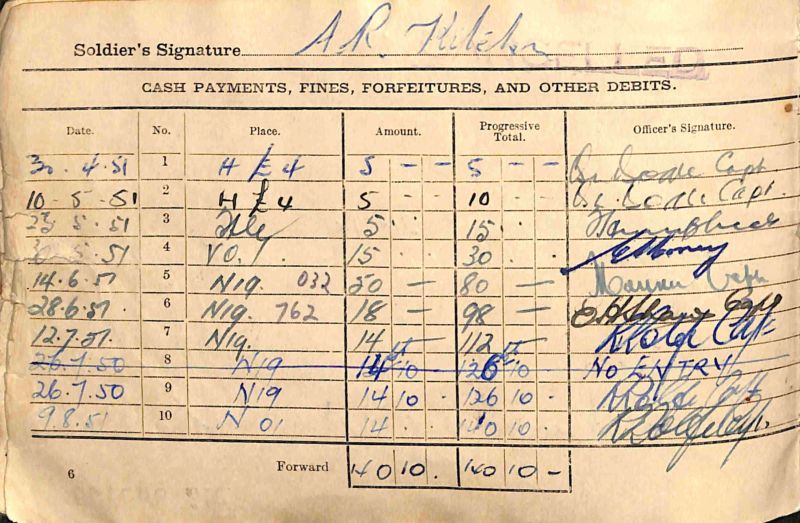 Soldier's Signature A R.
CASH PAYMENTS, FINES, FORFEITURES, AND OTHER DEBITS.
Date. No. Place. Amount. Progressive Total. Officer's Signature.
30 . 4 . 51 1 H £ 4 5 — — 5 — — Capt
10 - 5 - 51 2 H £ 4 5 — 10 — Capt.
5 . 51 3 5 15
5 . 51 4 VO. 15 30
14 . 6 . 51 5 Nig 032 50 — 80 —
28 . 6 . 51 . 6 Nig. 762 18 — 98 —
12.7.51. 7 Nig. 14 112
26.7.50 8 Nig 14 10 126 10 No ENTRY
26.7.50 9 Nig 14 10 . 126 10 .
9.8.51 10 N 01 14 . 140 10 .
6 Forward 140 10 . 140 10 —